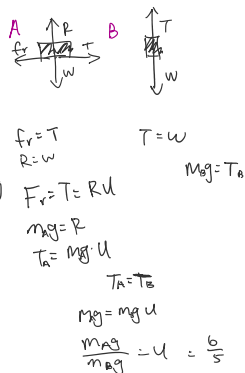 A
R
fr
T
W
B
T
W
fr = T
R = W
T = W
mBg = TB
) Fr = T = RU
mAg = R
TA = mAg · U
TA = TB
mAg = mBg U
mAg / mBg = U = 6/5